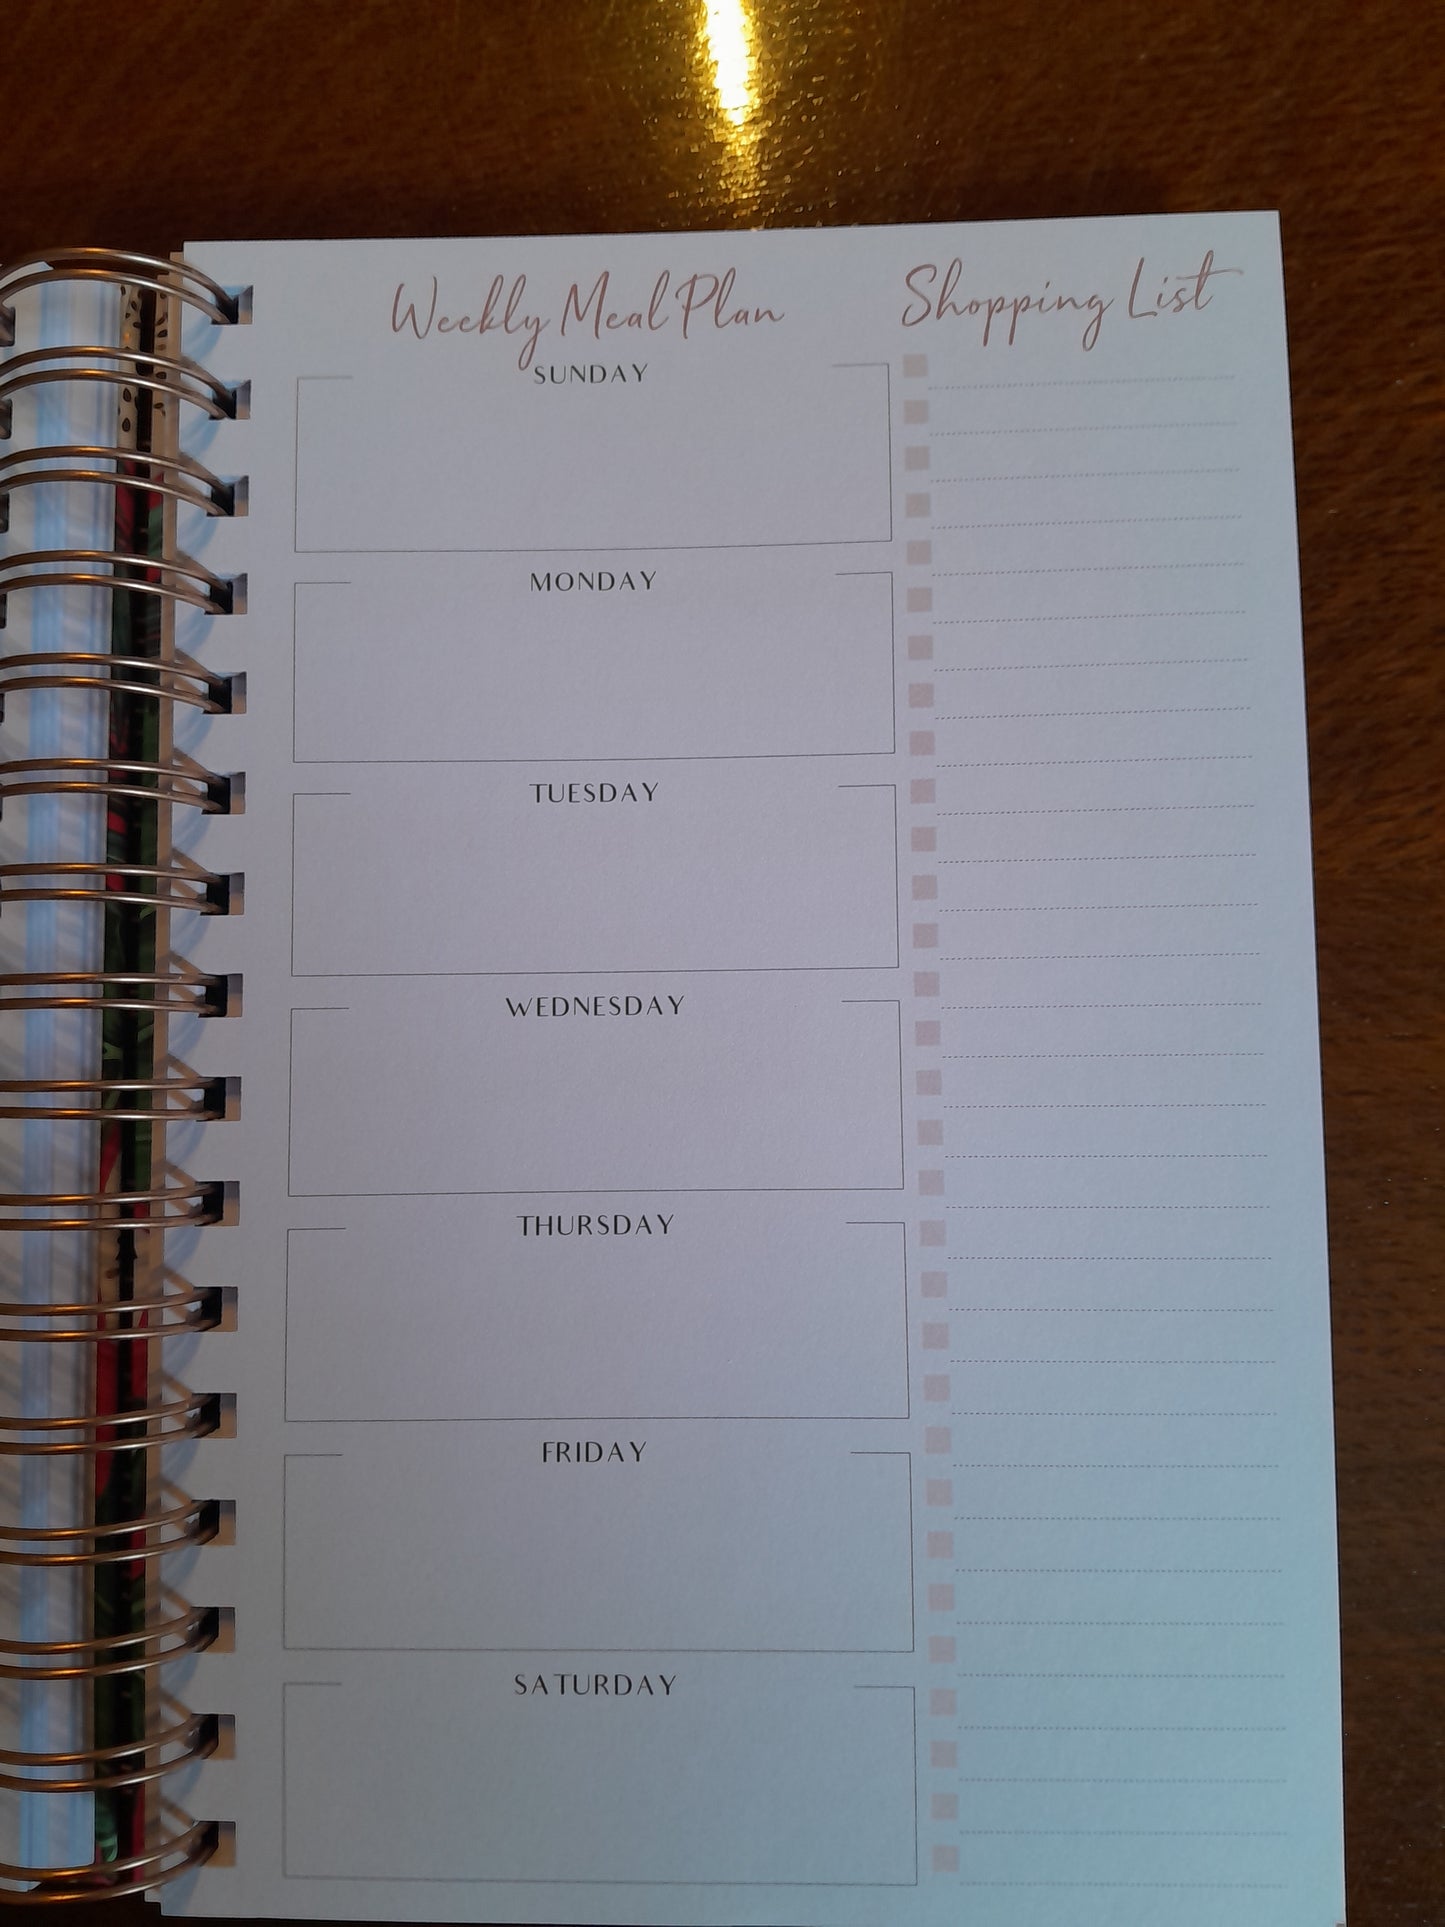 Weekly Meal Plan
Shopping List
SUNDAY
MONDAY
TUESDAY
WEDNESDAY
THURSDAY
FRIDAY
SATURDAY